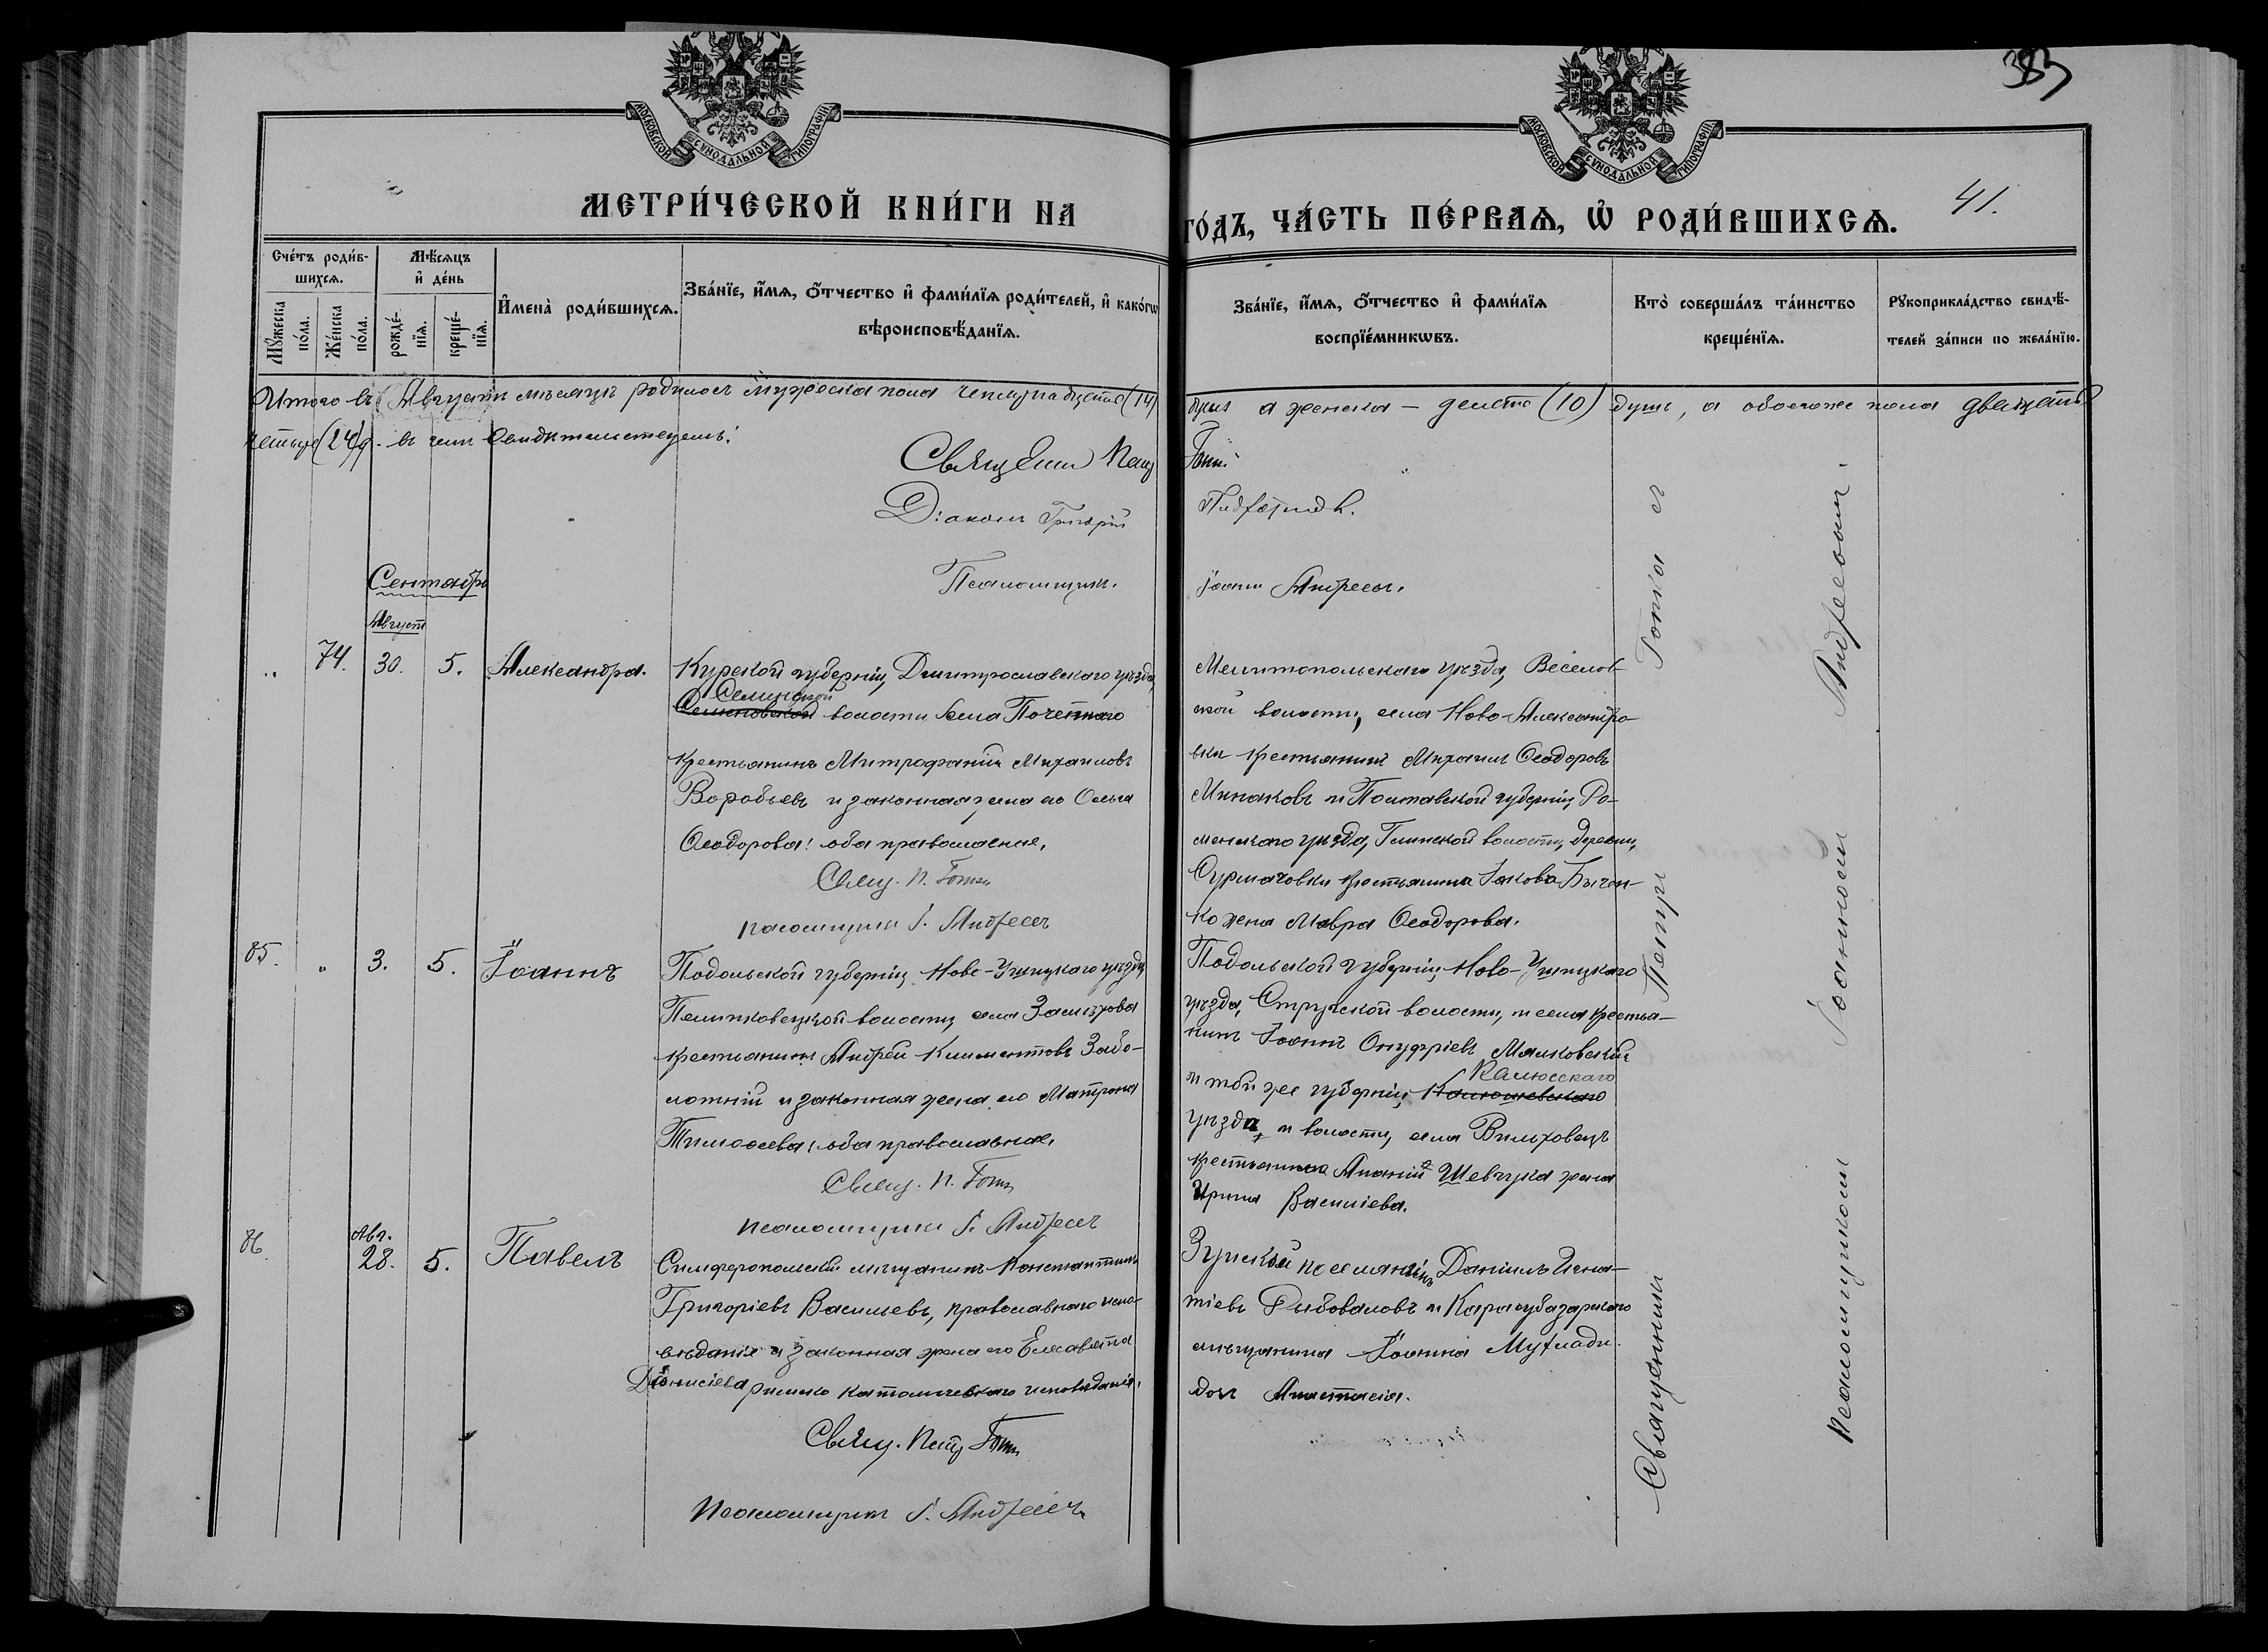 383
МОСКОВСКОЙ СѴНОДАЛЬНОЙ ТИПОГРАФІИ
МОСКОВСКОЙ СѴНОДАЛЬНОЙ ТИПОГРАФІИ
МЕТРИ́ЧЕСКОЙ КНИ́ГИ НА
ГО́ДЪ, ЧА́СТЬ ПЕ́РВАѦ, Ѡ҆ РОДИ́ВШИХСѦ.
41.
Сче́тъ роди́в-
шихсѧ.
Мꙋ́жеска
по́ла.
Же́нска
по́ла.
Мѣ́сѧцъ
и҆ де́нь
рожде́-
нїѧ.
креще́-
нїѧ.
И҆мена̀ роди́вшихсѧ.
Зва́нїе, и҆́мѧ, ѻ҆́тчество и҆ фами́лїѧ роди́телей, и҆ како́гѡ
вѣроисповѣ́данїѧ.
Зва́нїе, и҆́мѧ, ѻ҆́тчество и҆ фами́лїѧ
воспрїе́мникѡвъ.
Кто̀ соверша́лъ та́инство
креще́нїѧ.
Рꙋкоприкла́дство свидѣ́-
телей за́писи по жела́нїю.
Итого въ Августѣ мѣсяцѣ родилось мужеска пола четырнадцать (14)
душъ а женска – десять (10) душъ, а обоего же пола двадцать
четыре (24) д. въ чемъ свидѣтельствуемъ:
Священн. Петр Готи
Діаконъ Григорій
Псаломщикъ.
Іоаннъ Андреевъ.
Сентябрь
Август
74. 30. 5. Александра.
Курской губерніи, Дмитрославскаго уѣзда,
Селинской
Семеновской волости села Почепнаго
крестьянинъ Митрофаній Михаиловъ
Воробьевъ и законная жена его Ольга
Ѳеодорова; оба православные.
Свящ. П. Готи
псаломщикъ І. Андреевъ
Мелитопольскаго уѣзда, Веселов-
ской волости, села Ново-Александро-
вки крестьянинъ Михаилъ Ѳеодоровъ
Минаковъ и Полтавской губерніи, Ро-
менскаго уѣзда, Глинской волости, деревни,
Сурмачовки крестьянина Іакова Бычен-
ко жена Мавра Ѳеодорова.
85. " 3. 5. Іоаннъ
Подольской губерніи, Ново-Ушицкаго уѣзда
волости, села
крестьянинъ Андрей Климентовъ Забо-
лотній и законная жена его Матрона
Тимоѳеева; оба православные.
Свящ. П. Готи
псаломщикъ І. Андреевъ
Подольской губерніи, Ново-Ушицкаго
уѣзда, Стружской волости, и села крестья-
нинъ Іоаннъ Онуфріевъ Малковскій
Калюсскаго
и той же губерніи,
уѣзда, и волости, села Вильховецъ
крестьянина Ананія Шевчука жена
Ирина Василіева.
86. Авг. 28. 5. Павелъ
Симферопольскій мѣщанинъ Константинъ
Григоріевъ Васильевъ, православнаго испо-
вѣданія и законная жена его Елисавета
Діонисіева римско католическаго исповѣданія.
Свящ. Петр Готи
Псаломщикъ І. Андреевъ
Зуйской поселянинъ Даніилъ Игна-
тіевъ Рибоваловъ и Карасубазарскаго
мѣщанина Іоанна
дочь Анастасія.
Священникъ Петръ Готи съ
псаломщикомъ Іоанномъ Андреевымъ.